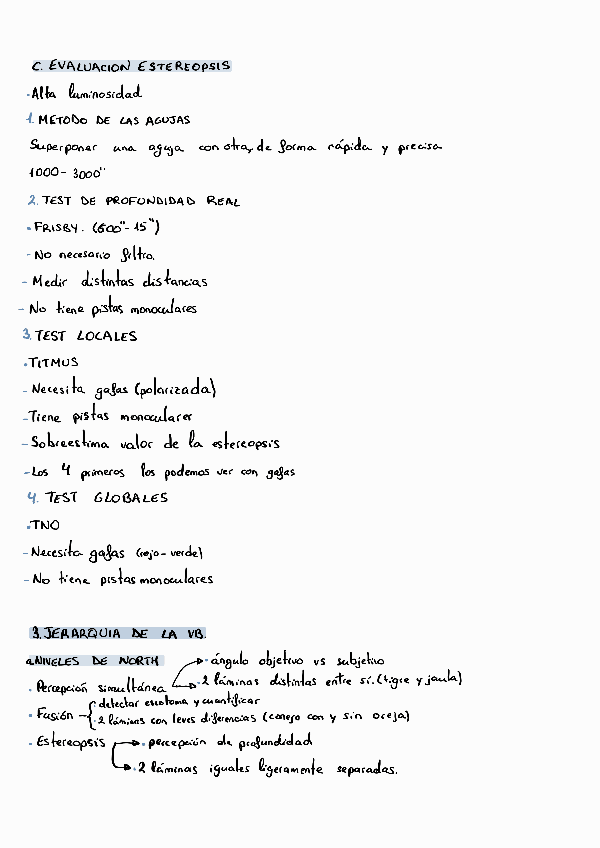 C. EVALUACION ESTEREOPSIS
·Alta luminosidad
1. METODO DE LAS AGUJAS
Superponer una aguja con otra, de forma rápida y precisa
1000-3000"
2. TEST DE PROFUNDIDAD REAL
·FRISBY. (600"-15")
- No necesario filtro.
- Medir distintas distancias
- No tiene pistas monoculares
3. TEST LOCALES
·TITMUS
- Necesita gafas (polarizada)
-Tiene pistas monoculares
-Sobreestima valor de la estereopsis
-Los 4 primeros los podemos ver con gafas
4. TEST GLOBALES
·TNO
-Necesita gafas (rojo-verde)
- No tiene pistas monoculares
3. JERARQUIA DE LA VB.
a.NIVELES DE NORTH
· ángulo objetivo vs subjetivo
· Percepción simultánea
· 2 láminas distintas entre sí. (tigre y jaula)
· Fusión
· detectar escotoma y cuantificar
· 2 láminas con leves diferencias (conejo con y sin oreja)
· Estereopsis
· percepción de profundidad
· 2 láminas iguales ligeramente separadas.